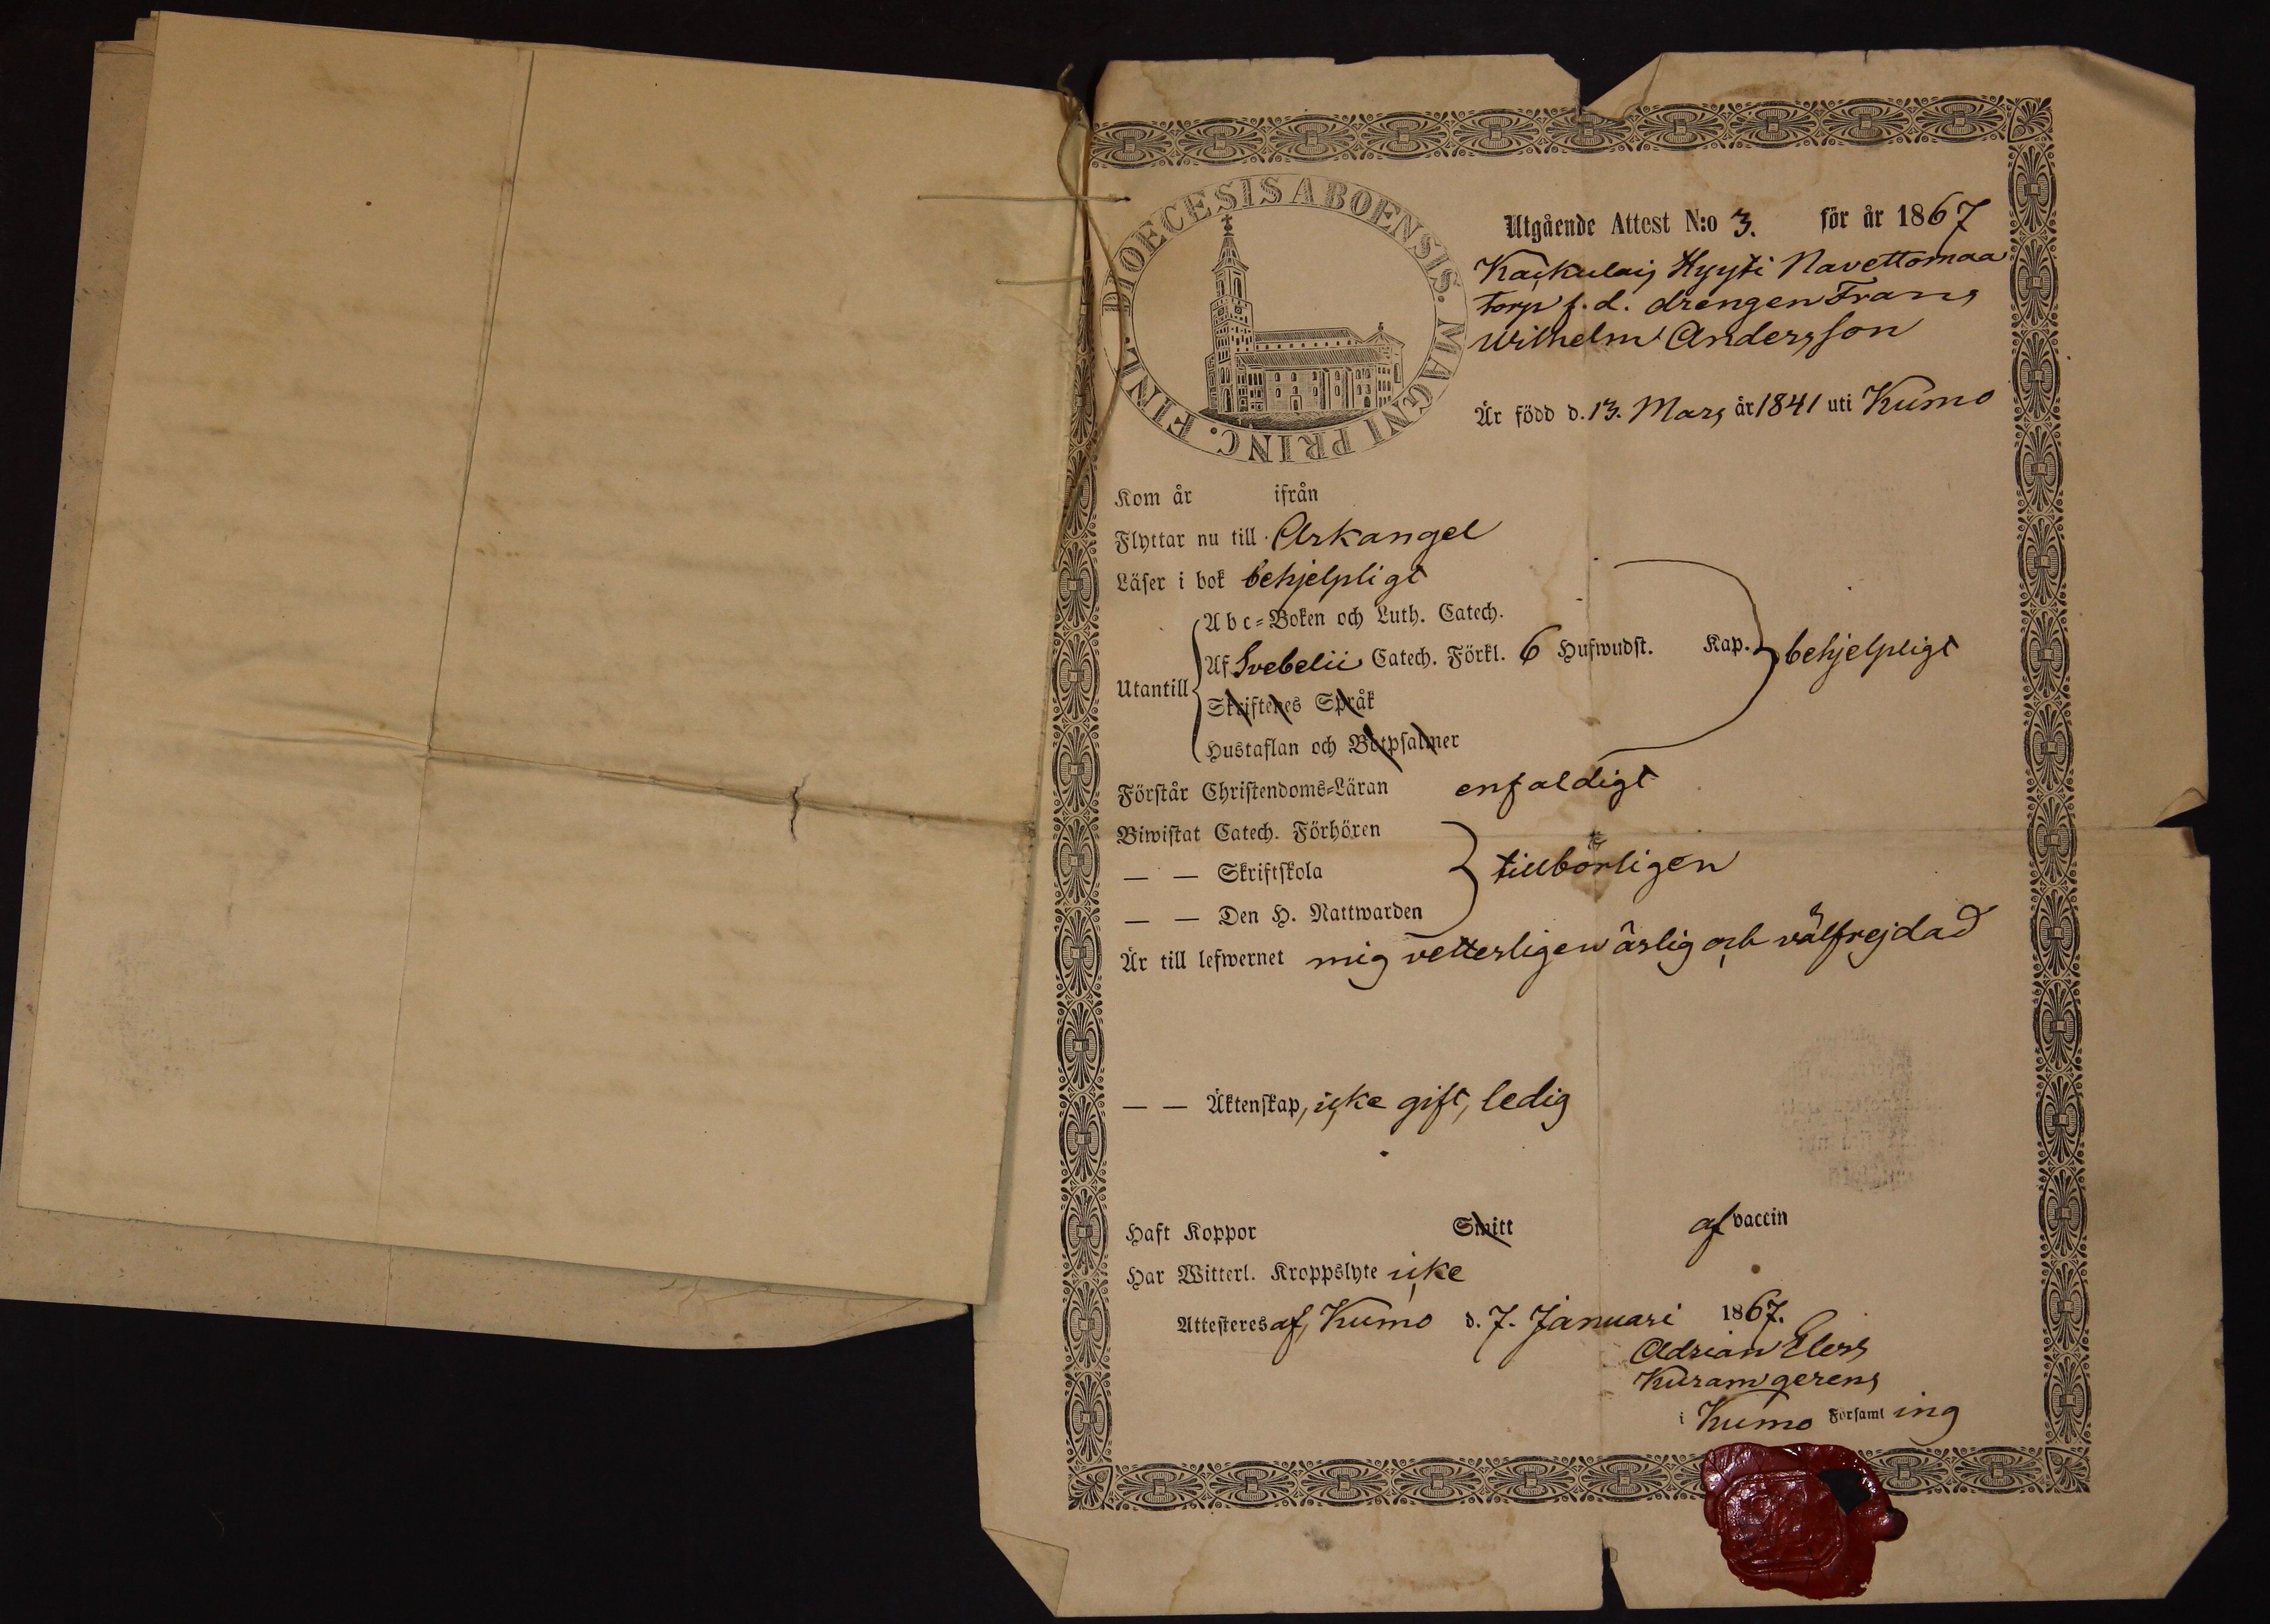 DIOECESIS ABOENSIS. MAGNI PRINC. FINL.
Utgående Attest N:o 3. för år 1867
Kaskulais Hyyti Navettomaa
torp f. d. drengen Frans
Wilhelm Andersson
Är född d. 13. Mars år 1841 uti Kumo
Kom år ifrån
Flyttar nu till Arkangel
Läser i bok behjelpligt
Utantill
Abc-Boken och Luth. Catech.
Af Svebelii Catech. Förkl. 6 Hufwudst. Kap. behjelpligt
Skriftenes Språk
Hustaflan och Botpsalmer
Förstår Christendoms-Läran enfaldigt
Biwistat Catech. Förhören
— — Skriftskola tillbörligen
— — Den H. Nattwarden
Är till lefwernet mig vetterligen ärlig och välfrejdad
— — Äktenskap, icke gift, ledig
Haft Koppor Smitt af vaccin
Har Witterl. Kroppslyte icke
Attesteres af, Kumo d. 7. Januari 1867.
Adrian Elers
Kuram gerens
i Kumo Församling